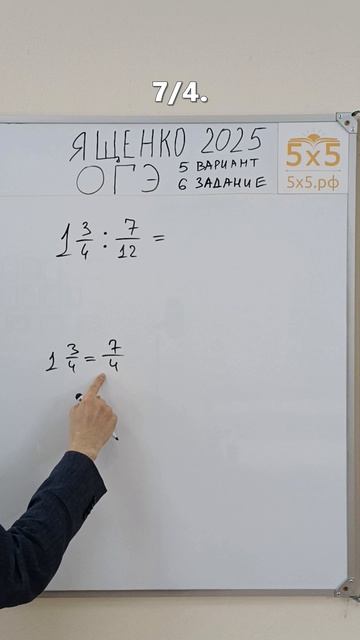 7/4.
ЯЩЕНКО 2025
ОГЭ
5 ВАРИАНТ
6 ЗАДАНИЕ
5x5
5x5.рф
1 3/4 : 7/12 =
1 3/4 = 7/4